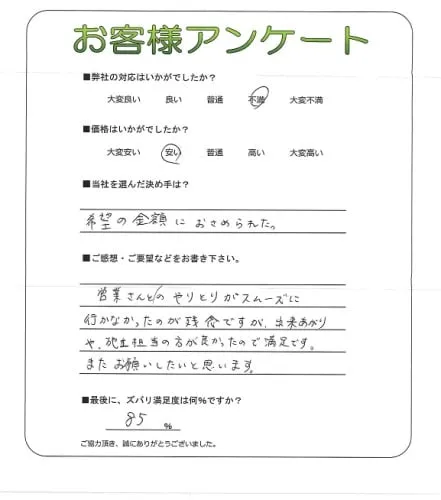 お客様アンケート
■弊社の対応はいかがでしたか?
大変良い 良い 普通 不満 大変不満
■価格はいかがでしたか?
大変安い 安い 普通 高い 大変高い
■当社を選んだ決め手は?
希望の金額におさめられた。
■ご感想・ご要望などをお書き下さい。
営業さんとのやりとりがスムーズに
行かなかったのが残念ですが、出来あがり
や、担当の方が良かったので満足です。
またお願いしたいと思います。
■最後に、ズバリ満足度は何%ですか?
85 %
ご協力頂き、誠にありがとうございました。